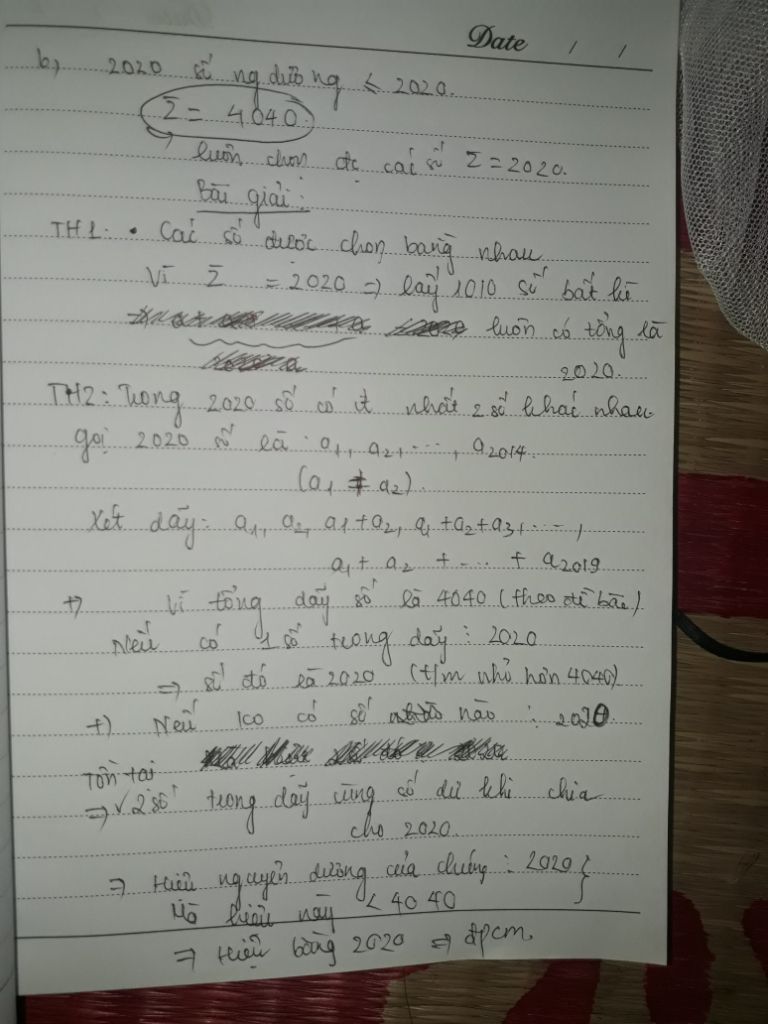 Date / /
b, 2020 số ng dương ≤ 2020.
Σ = 4040
→ luôn chọn đc các số Σ = 2020.
Bài giải:
TH1: • Các số được chọn bằng nhau
Vì Σ = 2020 => lấy 1010 số bất kì
luôn có tổng là
2020.
TH2: Trong 2020 số có ít nhất 2 số khác nhau
gọi 2020 số là: a1, a2, ..., a2014.
(a1 ≠ a2).
Xét dãy: a1, a2, a1 + a2, a1 + a2 + a3, ...,
a1 + a2 + ... + a2019
+) Vì tổng dãy số là 4040 (theo đề bài)
Nếu có 1 số trong dãy ⋮ 2020
=> số đó là 2020 (t/m nhỏ hơn 4040)
+) Nếu ko có số nào ⋮ 2020.
Tồn tại
=> √ 2 số trong dãy cùng số dư khi chia
cho 2020.
=> Hiệu nguyên dương của chúng ⋮ 2020 }
Mà hiệu này < 4040
=> Hiệu bằng 2020 => đpcm.